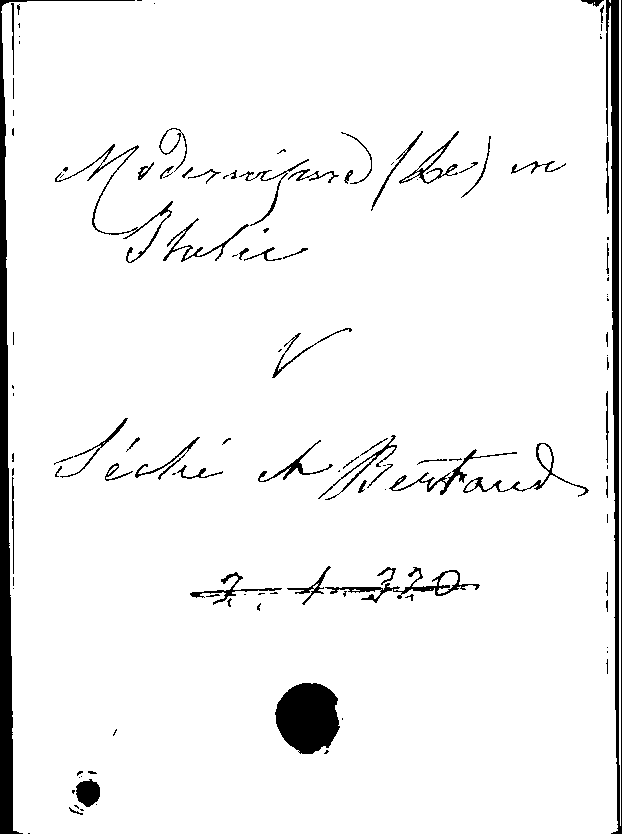 Modernisme (Le) en
Italie
V
Séché et Bertaud
Z. 1. 320